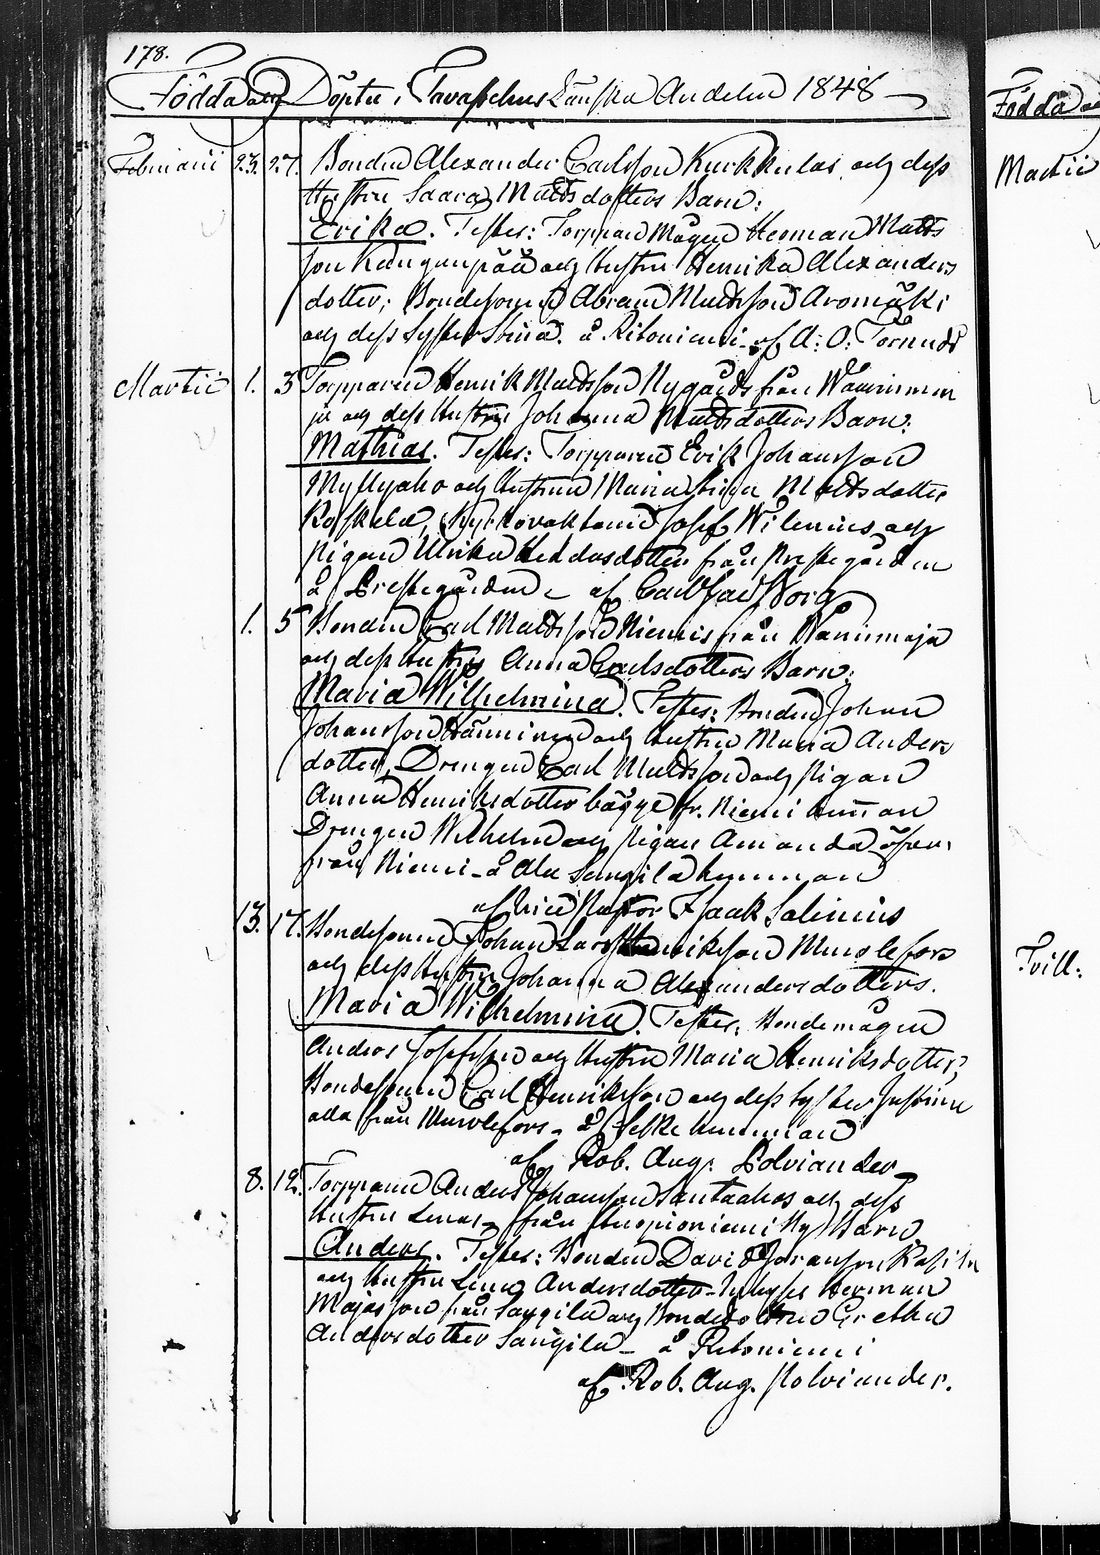 178.
Födda och Döpte i Tavastehus Länska Andelen 1848
Februarii 23. 27. Bonden Alexander Carlsson Kurkkulas och dess
Hustru Saara Mattsdotters Barn:
Erika. Testes: Torpparen Mågen Herman Matts
son Kangunpää och hustru Henrika Alexanders
dotter; Bondesonen Abram Mattsson Aromäki
och dess syster Stina. å Ritoniemi af A: O: Törnudd
Martii 1. 3 Torpparen Henrik Mattsson Nygårds från
ja och dess Hustru Johanna Mattsdotters Barn:
Mathias. Testes: Torpparen Erik Johansson
Myllyaho och hustrun Maria Mattsdotter
Koskela, Kyrkovaktaren Josef Wilenius och
Pigan Ulrika från Prestegården
å Prestegården af Carl Borg
1. 5 Bonden Carl Mattsson Niemis från
och dess Hustru Anna Carlsdotters Barn:
Maria Wilhelmina. Testes: Bonden Johan
Johansson Hänninen och hustru Maria Anders
dotter, Drengen Carl Mattsson och Pigan
Anna Henriksdotter bägge fr. Niemi hemman
Drengen Wilhelm och Pigan Amanda
från Niemi å Ala Sengilä hemman
af Vice Pastor Isaak Salenius
13. 17. Bondesonen Johan Henriksson Murolefors
och dess hustru Johanna Alexandersdotters.
Maria Wilhelmina. Testes: Bondemågen
Anders Josefsson och hustru Maria Henriksdotter,
Bondesonen Carl Henriksson och dess syster Justina
alla från Murolefors å hemman
af Rob. Aug. Polviander
8. 12. Torpparen Anders Johansson Santaahos och dess
Hustru Lenas från Barn
Anders. Testes: Bonden David Johansson
och hustru Lena Andersdotter Herman
Majasson från Saugila och Bondedottren Gretha
Andersdotter Saugila å Ritoniemi
af Rob. Aug. Polviander.
Födda
Martii
Tvill: